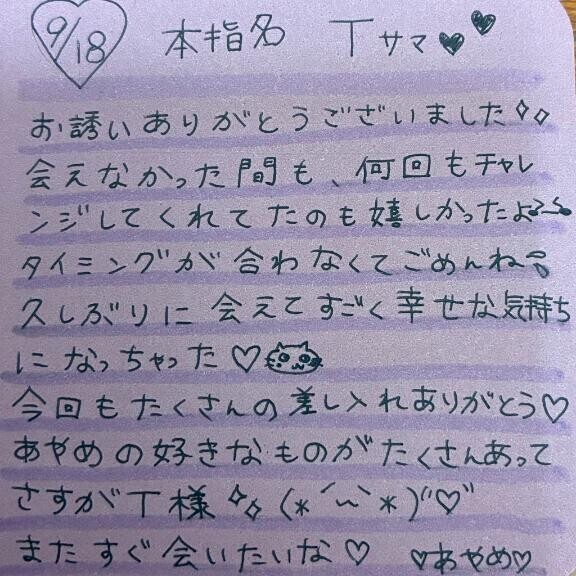 9/18 本指名 Tサマ♥♥
お誘いありがとうございました✧✧
会えなかった間も、何回もチャレ
ンジしてくれてたのも嬉しかったよ〜
タイミングが合わなくてごめんね
久しぶりに会えてすごく幸せな気持ち
になっちゃった♡
今回もたくさんの差し入れありがとう♡
あやめの好きなものがたくさんあって
さすがT様✧✧(*´〰`*)"♡"
またすぐ会いたいな♡ ♡あやめ♡